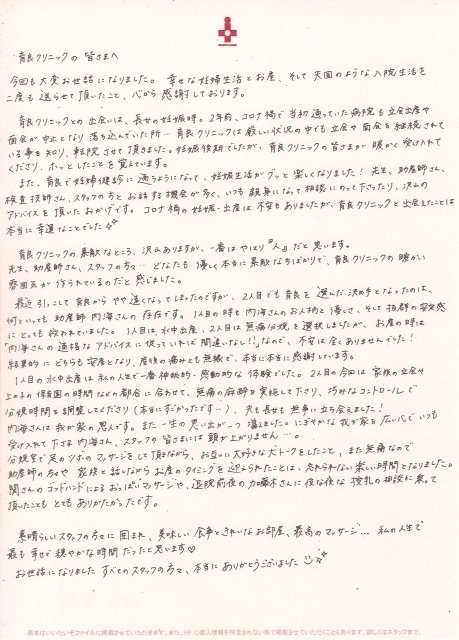 育良クリニックの皆さまへ
今回も大変お世話になりました。幸せな妊婦生活とお産、そして天国のような入院生活を
二度も送らせて頂いたこと、心から感謝しております。
育良クリニックとの出会いは、長女の妊娠時。2年前、コロナ禍で当初通っていた病院も立会出産や
面会が中止となり落ち込んでいた所…育良クリニックは厳しい状況の中でも立会や面会を継続されて
いる事を知り、転院させて頂きました。妊娠後期でしたが、育良クリニックの皆さまが暖かく受け入れて
くださり、ホッとしたことを覚えています。
また、育良で妊婦健診に通うようになって、妊娠生活がグッと楽しくなりました！先生、助産師さん、
検査技師さん、スタッフの方とお話する機会が多く、いつも親身になって相談にのって下さったり、沢山の
アドバイスを頂いたおかげです。コロナ禍の妊娠・出産は不安もありましたが、育良クリニックと出会えたことは
本当に幸運なことでした
育良クリニックの素敵なところ、沢山ありますが、一番はやはり"人"だと思います。
先生、助産師さん、スタッフの方々…どなたも優しく本当に素敵な方ばかりで、育良クリニックの暖かい
雰囲気が作られているのだと感じました。
最近引っこして育良からやや遠くなってしまったのですが、2人目でも育良を選んだ決め手となったのは、
何といっても助産師内海さんの存在です。1人目の時も内海さんのお人柄と優しさ、そして抜群の安定感
にとても救われていました。1人目は、水中出産、2人目は無痛分娩を選択しましたが、お産の時は
「内海さんの適格なアドバイスに従っていれば間違いなし!!」なので、不安は全くありませんでした！
結果的にどちらも安産となり、産後の痛みとも無縁で、本当に本当に感謝しています。
1人目の水中出産は私の人生で一番神秘的・感動的な体験でした。2人目の今回は家族の立会や
上の子の保育園の時間などの都合に合わせて、無痛の麻酔を実施して下さり、巧みなコントロールで
分娩時間を調整してくださり(本当にすごかったです…)、夫も長女も無事に立ち会えました！
内海さんは我が家の恩人です。また一生の思い出が一つ増えました。にぎやかな我が家を広い心でいつも
受け入れて下さる内海さん、スタッフの皆さまには頭が上がりません…。
分娩室で足のツボのマッサージをして頂きながら、お互いに大好きな犬トークをしたこと、また無痛なので
助産師の方々や家族と話しながらお産のタイミングを迎えられたことは、忘れられない楽しい時間となりました。
関さんのゴッドハンドによるおっぱいマッサージや、退院前夜の加藤木さんに夜な夜な授乳の相談に乗って
頂いたこともとてもありがたかったです。
素晴らしいスタッフの方々に囲まれ、美味しい食事ときれいなお部屋、最高のマッサージ…私の人生で
最も幸せで穏やかな時間だったと思います♡
お世話になりましたすべてのスタッフの方々、本当にありがとうございました
基本はいいたいぞファイルに掲載させていただきます。また、HPに個人情報を特定されない形で掲載させていただくこともあります。詳しくはスタッフまで。